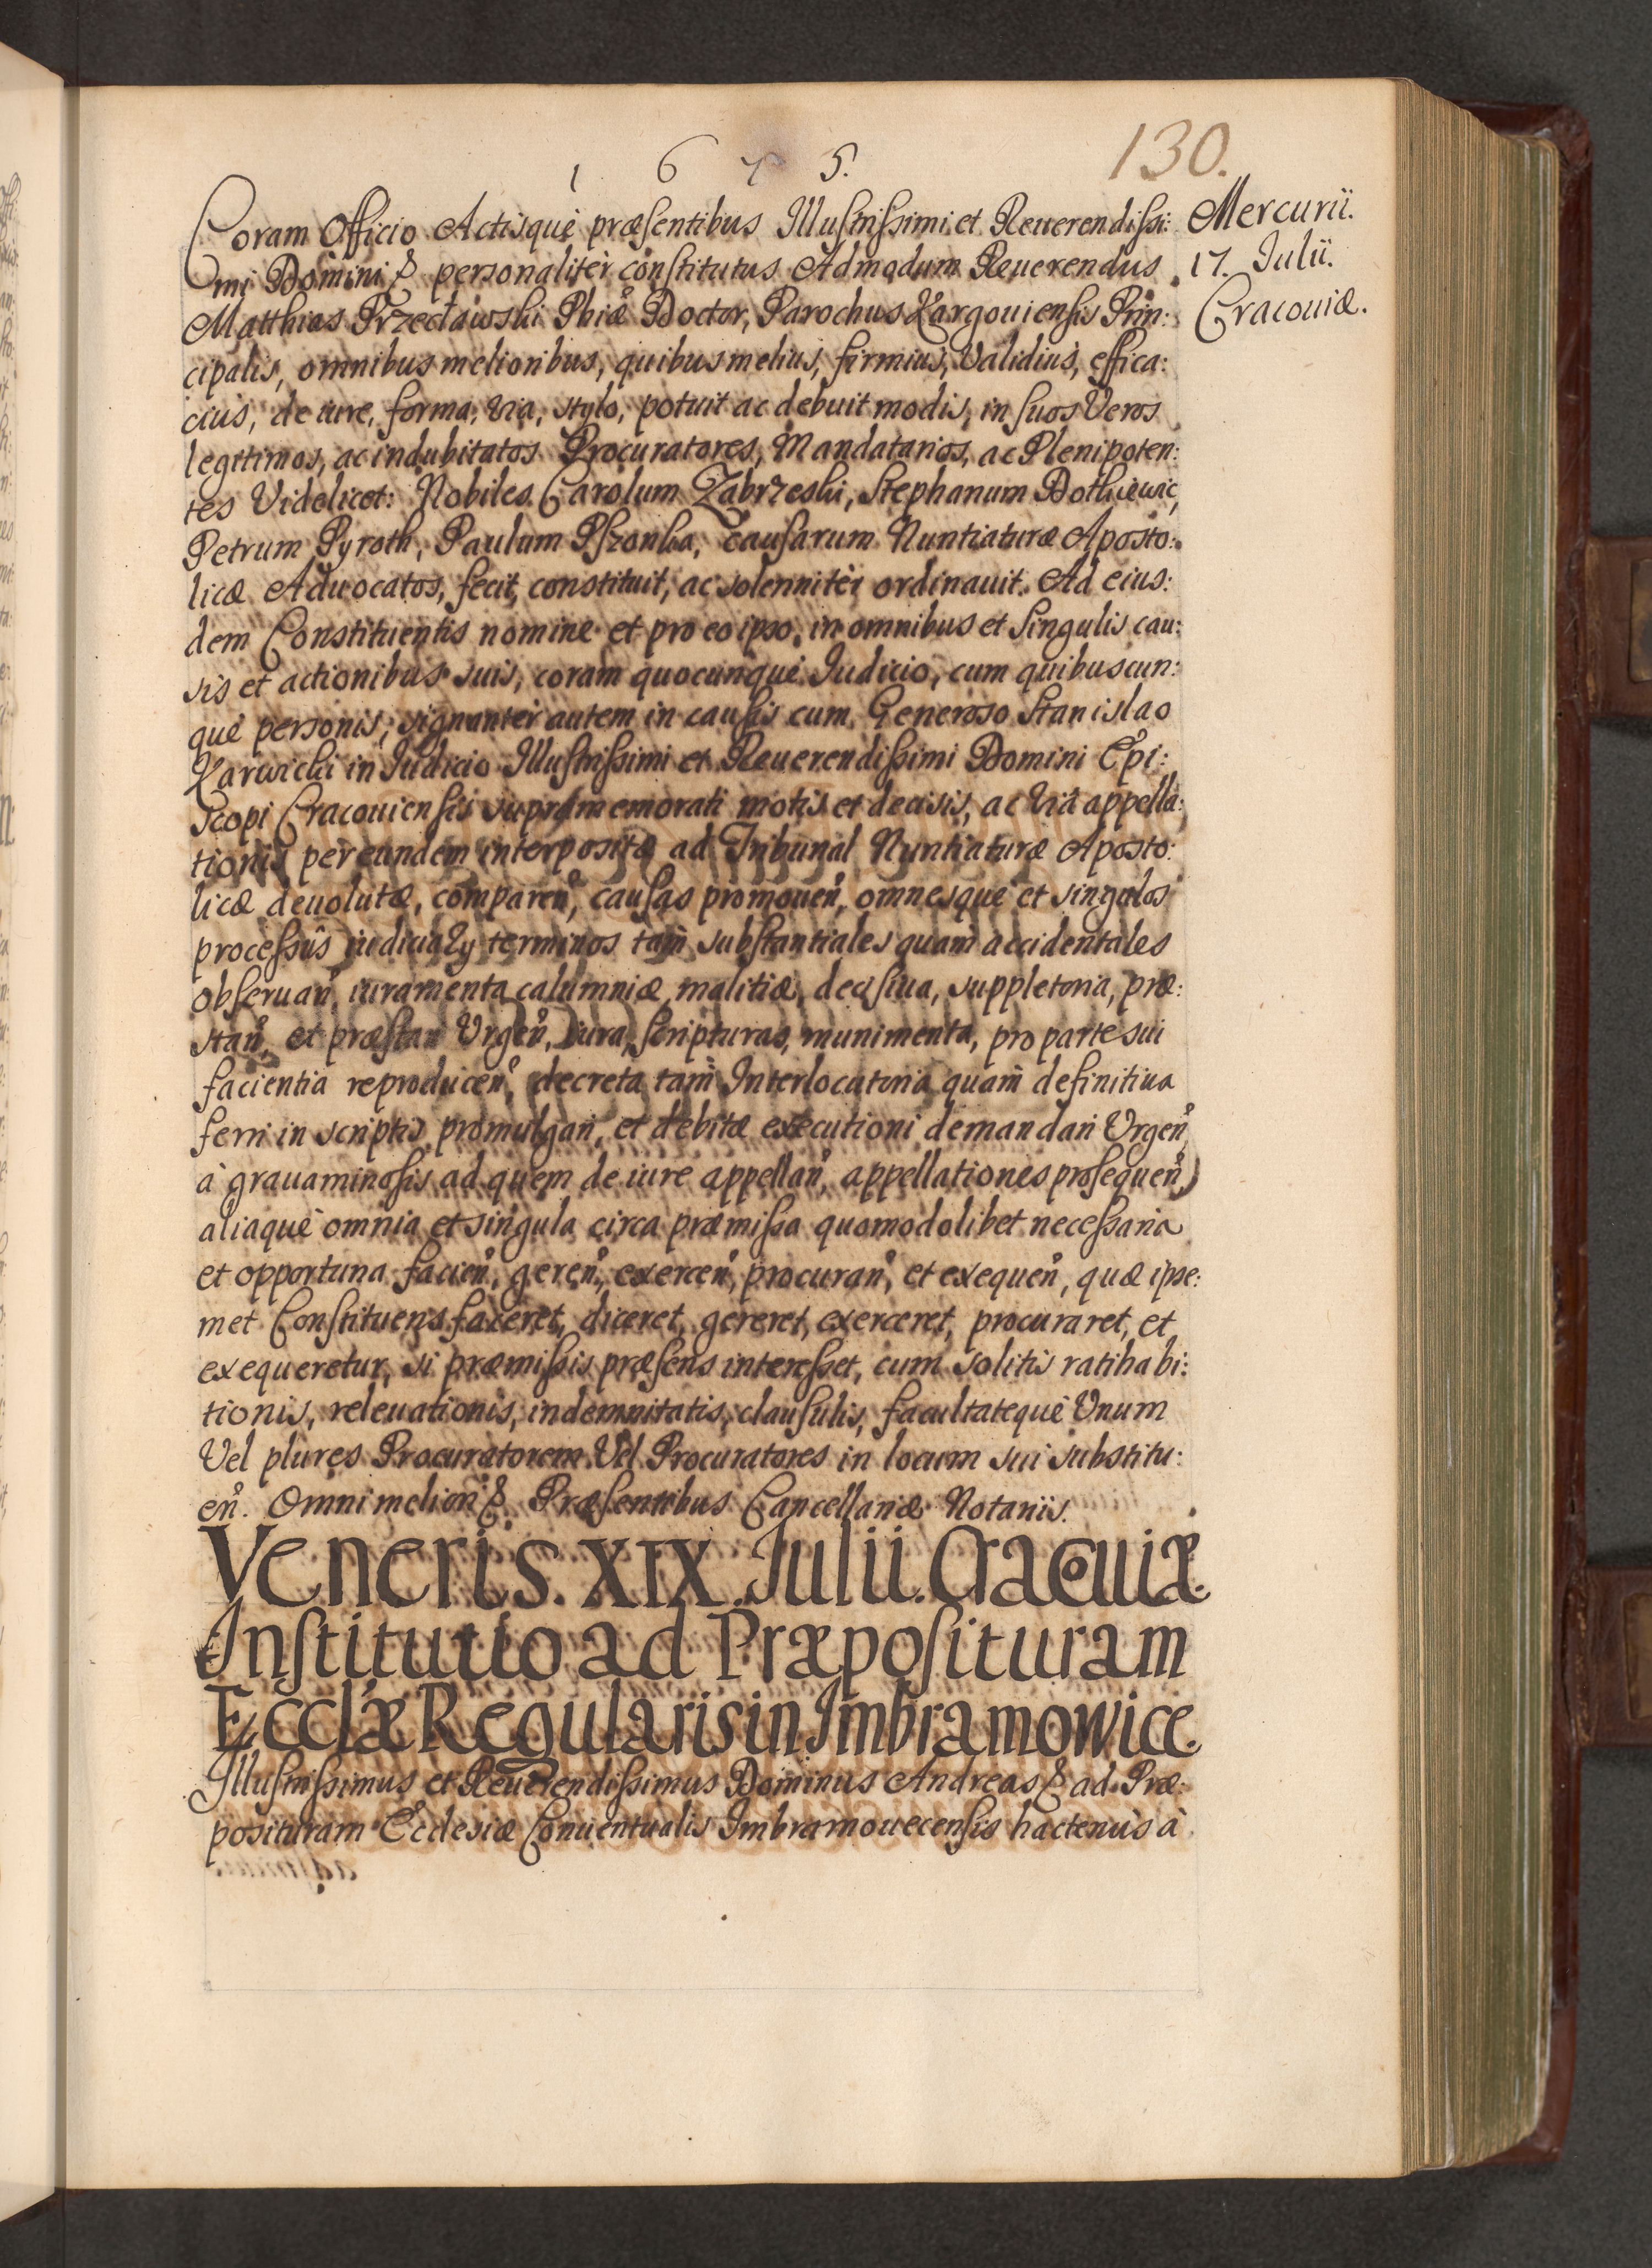 1 6 7 5.
130.
Mercurii.
17. Julii.
Cracouiæ.
Coram Officio Actisquè præsentibus Illustrissimi et Reuerendissi:
mi Domini & personalitèr constitutus Admodum Reuerendus
Matthias Przecławski Phiæ Doctor, Parochus Kargouiensis Prin:
cipalis, omnibus melioribus, quibus melius, firmius, Validius, effica:
cius, de iure, forma, via, stylo, potuit ac debuit modis, in suos Veros
legitimos, ac indubitatos Procuratores, Mandatarios, ac Plenipoten:
tes Videlicet: Nobiles Carolum Zabrzeski, Stephanum Bothiewic,
Petrum Pyroth, Paulum Pszonka, causarum Nuntiaturæ Aposto:
licæ Aduocatos, fecit, constituit, ac solennitèr ordinauit. Ad eius:
dem Constituentis nomine et pro eo ipso, in omnibus et singulis cau:
sis et actionibus suis, coram quocunquè Judicio, cum quibuscun:
què personis; signantèr autem in causis cum Generoso Stanislao
Karwicki in Judicio Illustrissimi et Reuerendissimi Domini Epi:
scopi Cracouiensis supramemorati motis et decisis, ac vià appella:
tionis per eundem interpositæ ad Tribunal Nuntiaturæ Aposto:
licæ deuolutæ, comparen, causas promouen, omnesquè et singulos
processûs iudicialy terminos tàm substantiales quàm accidentales
obseruan, iuramenta calumniæ, malitiæ, decisiua, suppletoria, præ:
stan, et præstari Urgen, iura, scripturas, munimenta, pro parte sui
facientia reproducen, decreta tàm Interlocutoria quàm definitiua
ferri in scriptis promulgari, et debitæ executioni demandari Urgen,
à grauaminosis ad quem de iure appellan, appellationes prosequen,
aliaquè omnia et singula circa præmissa quomodolibet necessaria
et opportuna facien, geren, exercen, procuran, et exequen, quæ ipse:
met Constituens faceret, diceret, gereret, exerceret, procuraret, et
exequeretur, si præmissis præsens interesset, cum solitis ratihabi:
tionis, releuationis, indemnitatis, clausulis, facultatequè Vnum
Vel plures Procuratorem Vel Procuratores in locum sui substitu:
en. Omni meliori & Præsentibus Cancellariæ Notariis.
Veneris. XIX. Julii. Cracouiæ.
Institutio ad Præposituram
Ecclæ Regularis in Imbramowice.
Illustrissimus et Reuerendissimus Dominus Andreas & ad Præ:
posituram Ecclesiæ Conuentualis Imbramouecensis hactenùs à